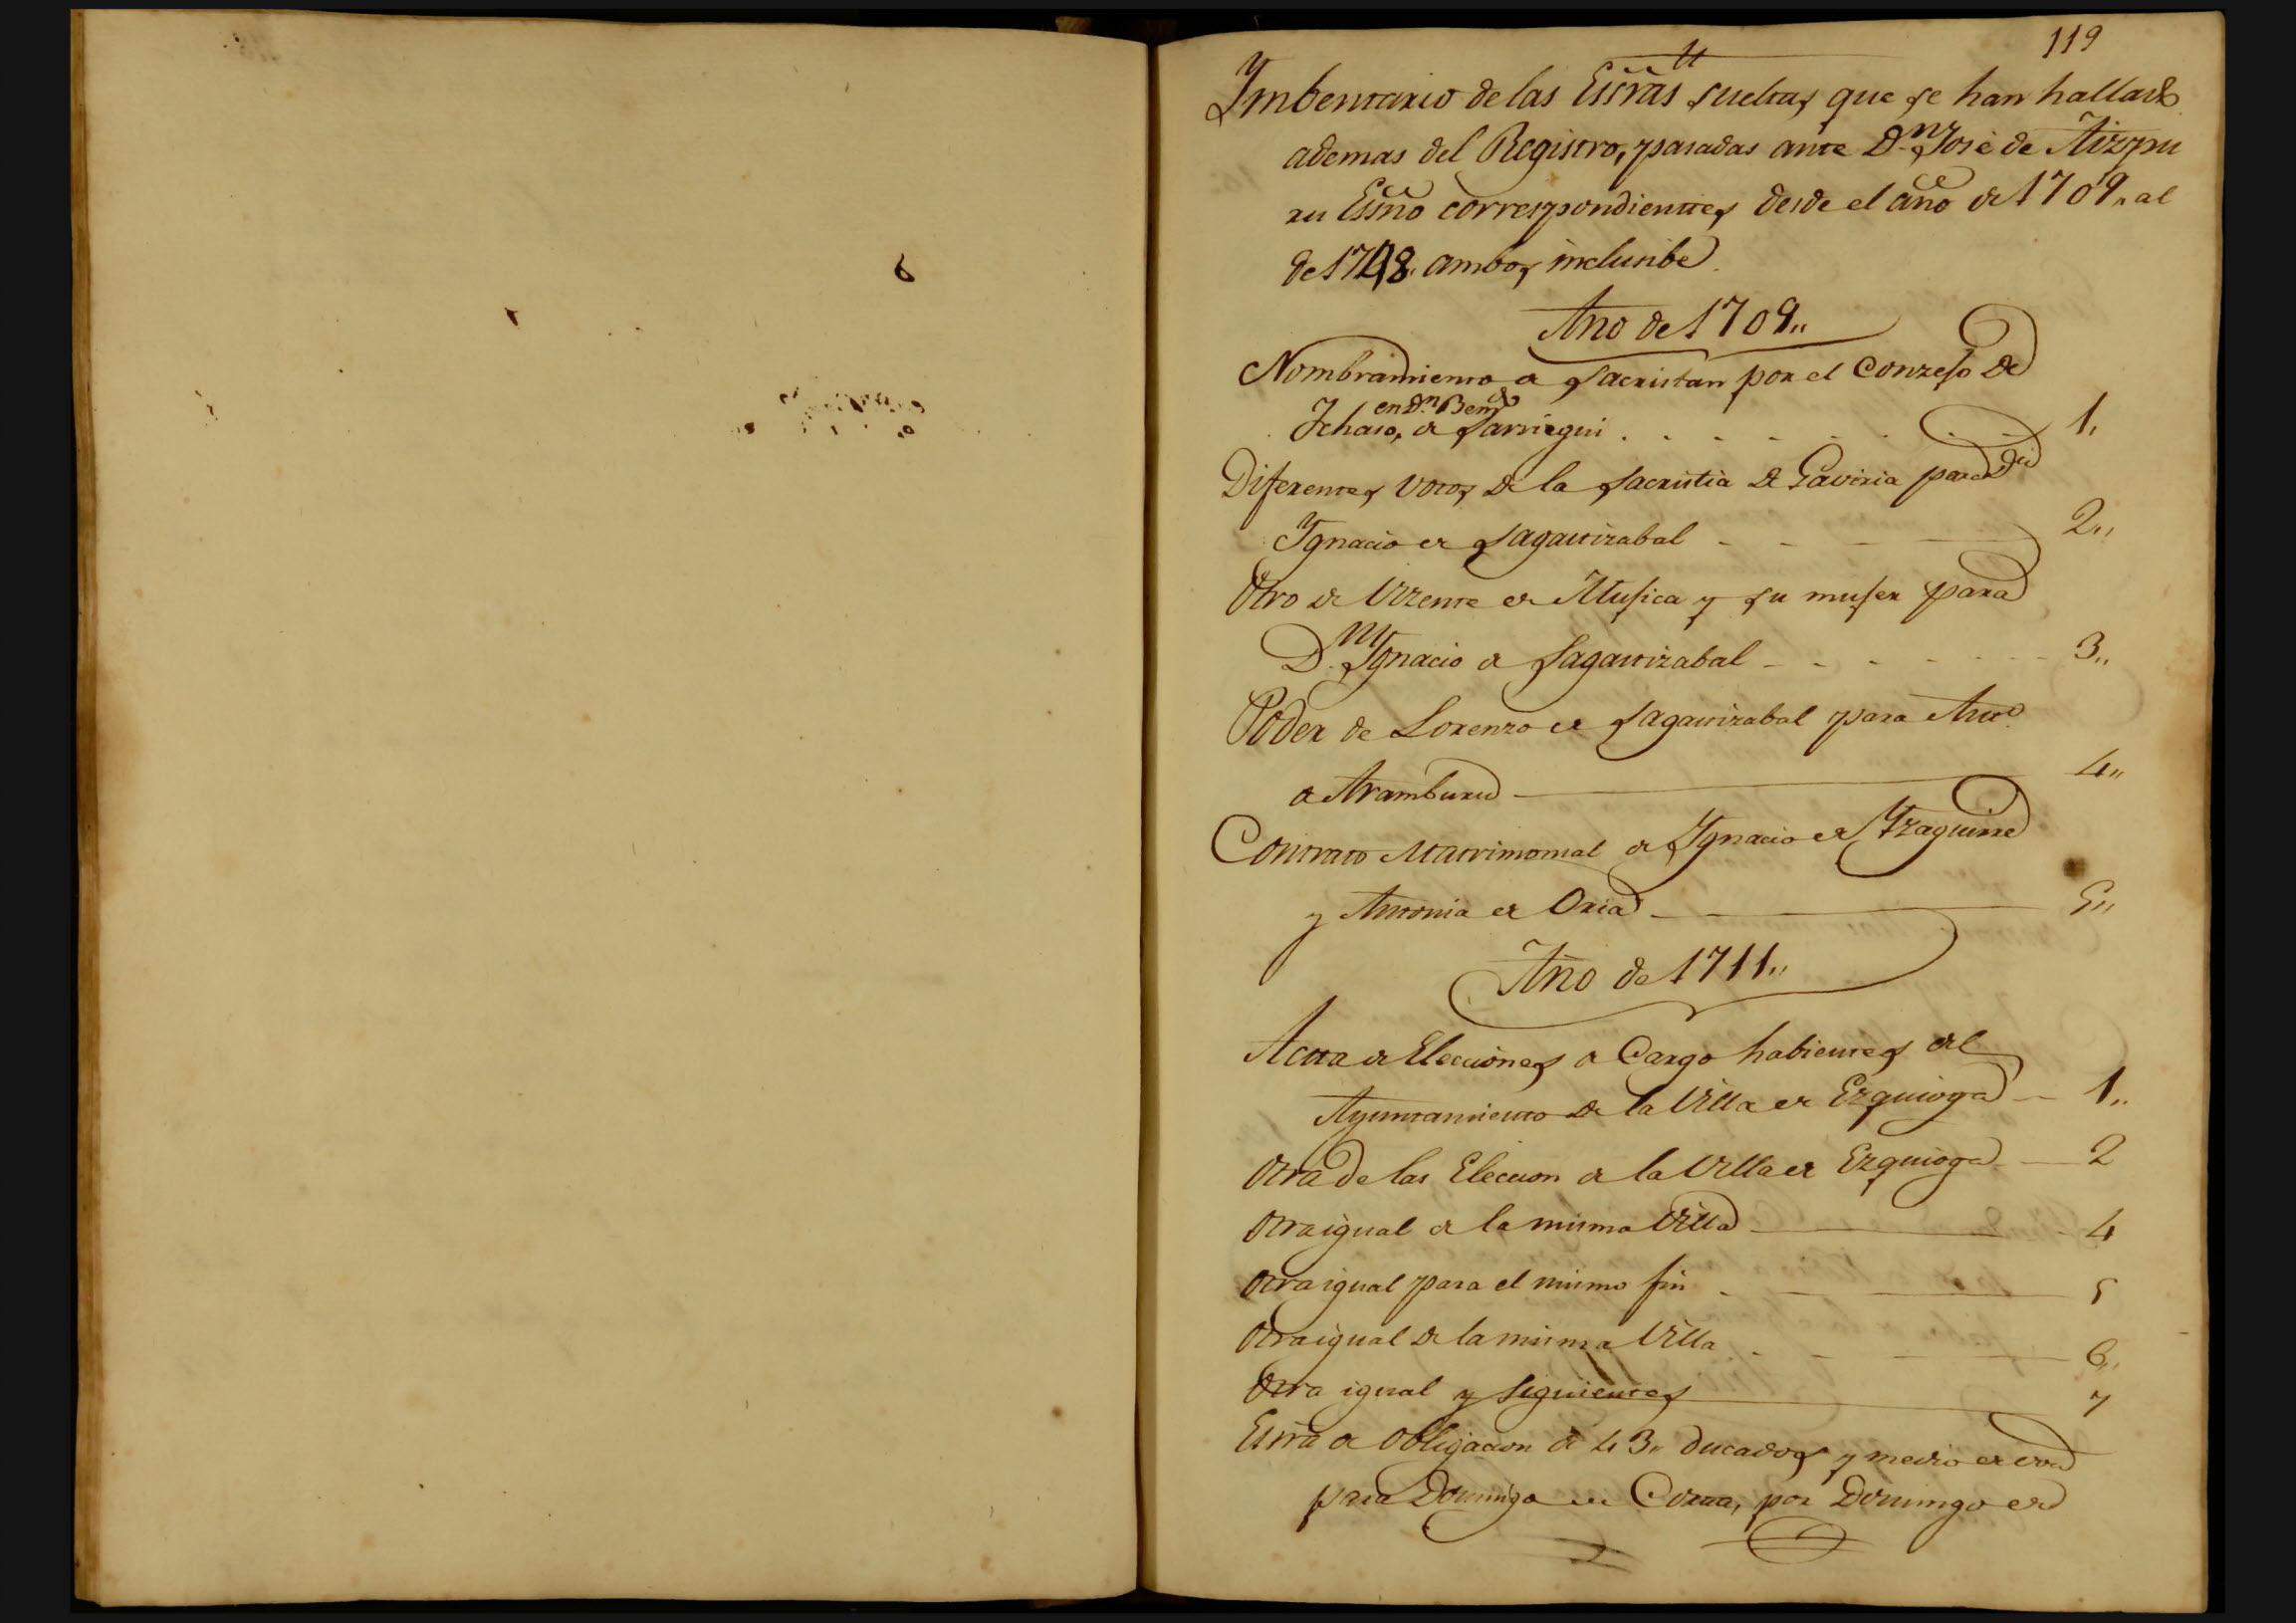 119
Ymbentario de las Essras sueltas que se han hallado
ademas del Registro, pasadas ante Dn. José de Aizpu
ru Essno correspondientes desde el año de 1709,, al
de 1748,, ambos inclusibe
Año de 1709,,
Nombramiento de Sacristan por el Conzejo de
en Dn. Bendo
Ichaso, de Sarriegui . . . . . 1,,
Diferentes votos de la Sacristia de Gaviria para Dn
Ygnacio de Sagastizabal - - - 2,,
Otro de Vizente de Mujica y su mujer para
Dn. Ygnacio de Sagastizabal - - - - - 3,,
Poder de Lorenzo de Sagastizabal para Anto.
de Aramburu - 4,,
Contrato Matrimonial de Ygnacio de Yzaguirre
y Antonia de Oria - 5,,
Año de 1711,,
Acta de Elecciones de Cargo habientes del
Ayuntamiento de la Villa de Ezquioga - 1,,
Otra de las Eleccion de la Villa de Ezquioga - 2
Otra igual de la misma Villa - 4
Otra igual para el mismo fin - 5
Otra igual de la misma Villa - 6,,
Otra igual y siguientes - 7
Essra de obligacion de 43,, ducados y medio de
para Domingo de Corta, por Domingo de